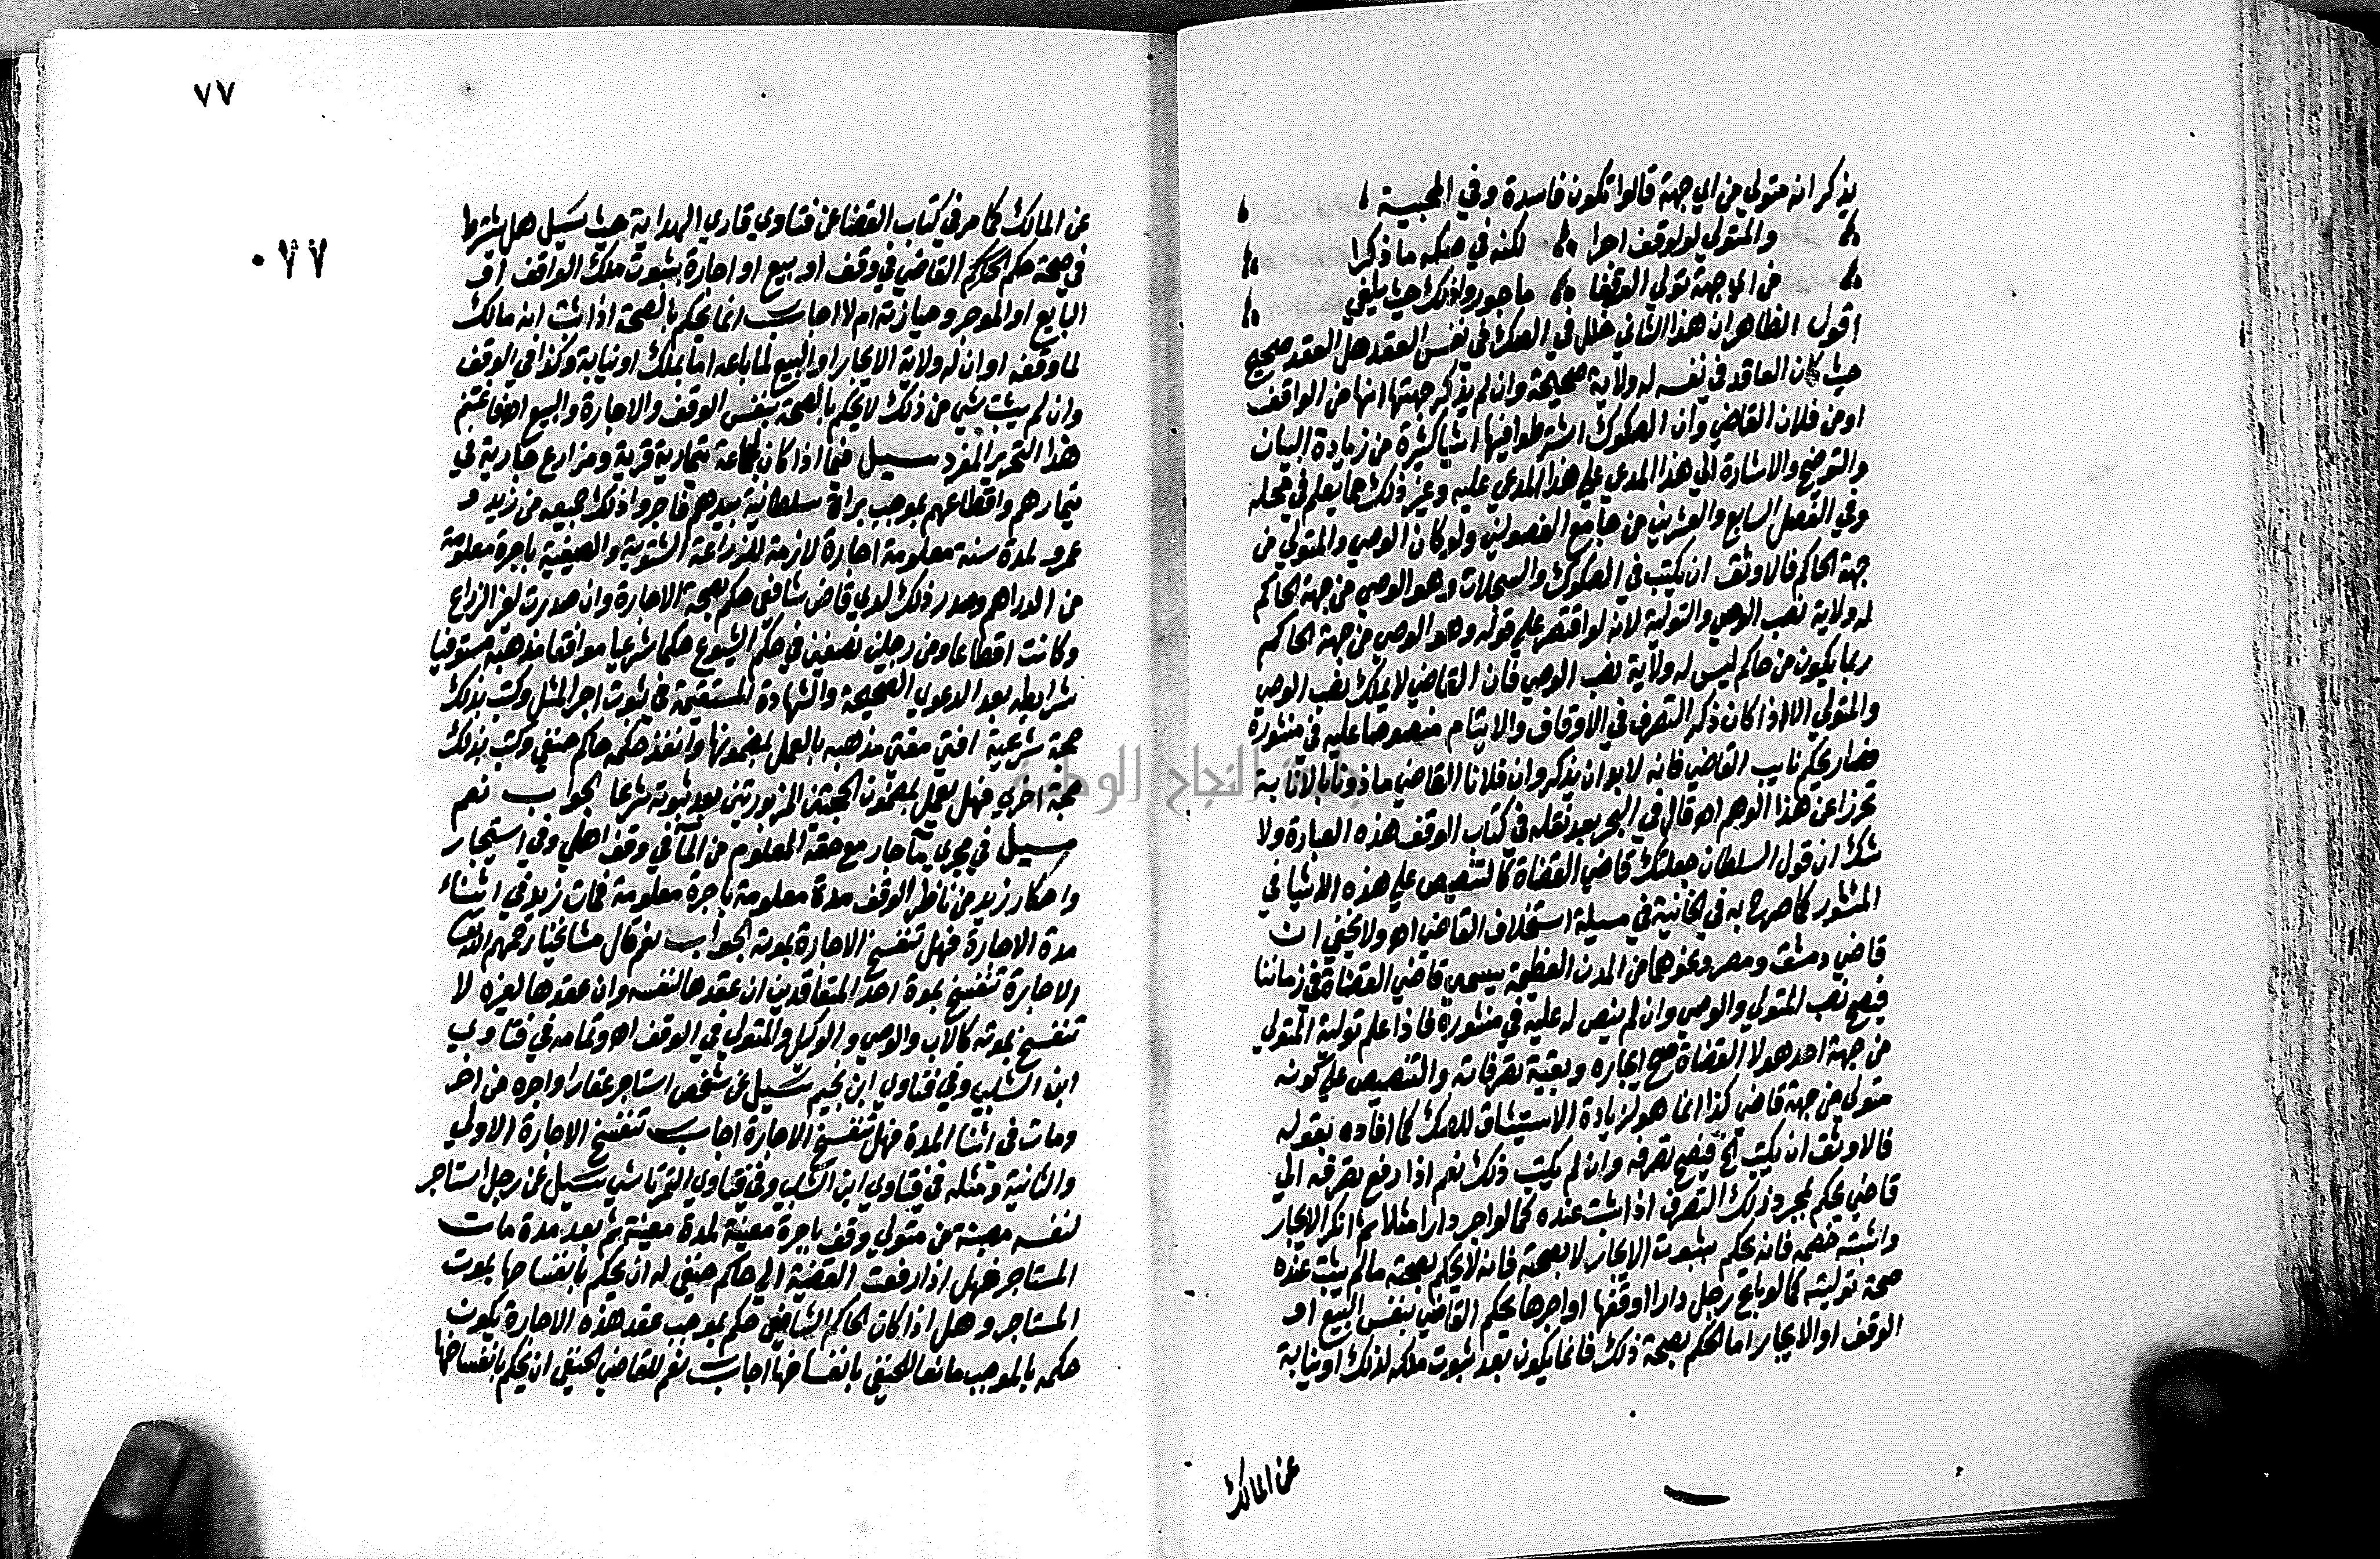 يذكر انه متولي من اي جهة قالوا تكون فاسدة وفي المحبية
والمتولي لو لوقف اجرا لكنه في صكه ما ذكرا
من اي جهة تولي الوقفا ما جوزوا ذلك حيث يلفي
اقول الظاهر ان هذا الثاني خلل في الصك لا في نفس العقد هل العقد صحيح
حيث كان العاقد في نفسه له ولاية صحيحة وان لم يذكر جهتها انها من الواقف
او من فلان القاضي وان الصكوك اشترطوا فيها اشيا كثيرة من زيادة البيان
والتوضيح والاشارة الي هذا المدعي علي هذا المدعي عليه وغير ذلك مما يعلم في محله
وفي الفصل السابع والعشرين من جامع الفصولين ولو كان الوصي والمتولي من
جهة الحاكم فالاوثق ان يكتب في الصكوك والسجلات وهو الوصي من جهة الحاكم
له ولاية نصب الوصي والتولية لانه لو اقتصر علي قوله وهو الوصي من جهة الحاكم
ربما يكون من حاكم ليس له ولاية نصب الوصي فان القاضي لا يملك نصب الوصي
والمتولي الا اذا كان ذكر التصرف في الاوقاف والايتام منصوصا عليه في منشوره
فصار كحكم نايب القاضي فانه لا بد ان يذكر وان فلانا القاضي ماذونا بالانابة
تحرزا عن هذا الوهم اه قال في البحر بعد نقله في كتاب الوقف هذه العبارة ولا
شك ان قول السلطان جعلتك قاضي القضاة كالتنصيص علي هذه الاشيا في
المنشور كما صرح به في الخانية في مسيلة استخلاف القاضي اه ولا يخفي ان
قاضي دمشق ومصر ونحوهما من المدن العظيمة يسمي قاضي القضاة في زماننا
فيصح نصب المتولي والوصي وان لم ينص له عليه في منشوره فاذا علم تولية المتولي
من جهة احد هولا القضاة صح ايجاره وبقية تصرفاته والتنصيص علي كونه
متولي من جهة قاضي كذا انما هو لزيادة الاستيثاق للصك كما افاده بقوله
فالاوثق ان يكتب الخ فيصح تصرفه وان لم يكتب ذلك نعم اذا رفع تصرفه الي
قاضي يحكم بمجرد ذلك التصرف اذا ثبت عنده كما لو اجر دارا مثلا ثم انكر الايجار
واثبته خصمه فانه يحكم بثبوت الايجار لا بصحة فانه لا يحكم بصحته ما لم يثبت عنده
صحة توليته كما لو باع رجل دارا او وقفها او اجرها يحكم القاضي بنفس البيع او
الوقف او الايجار اما الحكم بصحة ذلك فانما يكون بعد ثبوت ملكه لذلك او نيابة
عن المالك
٧٧
٧٧
عن المالك كما مر في كتاب القضا عن فتاوي قاري الهداية حيث سيل هل يشترط
في صحة حكم الحاكم القاضي في وقف او بيع او اجارة بثبوت ملك الواقف او
البايع او الموجر وحيازته ام لا اجاب انما يحكم بالصحة اذا ثبت انه مالك
لما وقفه او ان له ولاية الايجار او البيع لما باعه اما بملك او نيابة وكذا في الوقف
وان لم يثبت شي من ذلك لا يحكم بالصحة بنفس الوقف والاجارة والبيع اه فاغتنم
هذا التحرير المفرد سيل فيما اذا كان لجماعة تيمارية قرية ومزارع جارية في
تيمارهم واقطاعهم بموجب براة سلطانية بيدهم فاجروا ذلك جميعه من زيد و
عمرو لمدة سنة معلومة اجارة لازمة للزراعة الشتوية والصيفية باجرة معلومة
من الدراهم وصدر ذلك لدي قاض شافعي حكم بصحة الاجارة وان صدرت لغير الزراع
وكانت اقطاعا ومن رجلين نصفين في حكم الشيوع حكما شرعيا موافقا مذهبه مستوفيا
شرايطه بعد الدعوي الصحيحة والشهادة المستقيمة في ثبوت اجر المثل وكتب بذلك
حجة شرعية افتي مفتي مذهبه بالعمل بمضمونها وانفذ حكمه حاكم حنفي وكتب بذلك
حجة اخري فهل يعمل بمضمون الحجتين المزبورتين بعد ثبوته شرعا الجواب نعم
سيل في مجري مآ جار مع حقه المعلوم من المآ في وقف اهلي وفي استيجار
واحتكار زيد من ناظر الوقف مدة معلومة باجرة معلومة فمات زيد في اثناء
مدة الاجارة فهل تنفسخ الاجارة بموته الجواب نعم قال مشايخنا رحمهم الله تعالي
الاجارة تنفسخ بموت احد المتعاقدين ان عقدها لنفسه وان عقدها لغيره لا
تنفسخ بموته كالاب والوصي والوكيل والمتولي في الوقف اه وتمامه في فتاوي
ابن الشلبي وفي فتاوي ابن نجيم سيل عن شخص استاجر عقارا واجره من اخر
ومات في اثنا المدة فهل تنفسخ الاجارة اجاب تنفسخ الاجارة الاولي
والثانية ومثله في فتاوي ابن الشلبي وفي فتاوي التمرتاشي سيل عن رجل استاجر
لنفسه مصبنة من متولي وقف باجرة معينة لمدة معينة ثم بعد مدة مات
المستاجر فهل اذا رفعت القضية الي حاكم حنفي له ان يحكم بانفساخها بموت
المستاجر وهل اذا كان الحاكم الشافعي حكم بموجب عقد هذه الاجارة يكون
حكمه بالموجب مانعا للحنفي بانفساخها اجاب نعم للقاضي الحنفي ان يحكم بانفساخها
جامعة النجاح الوطنية